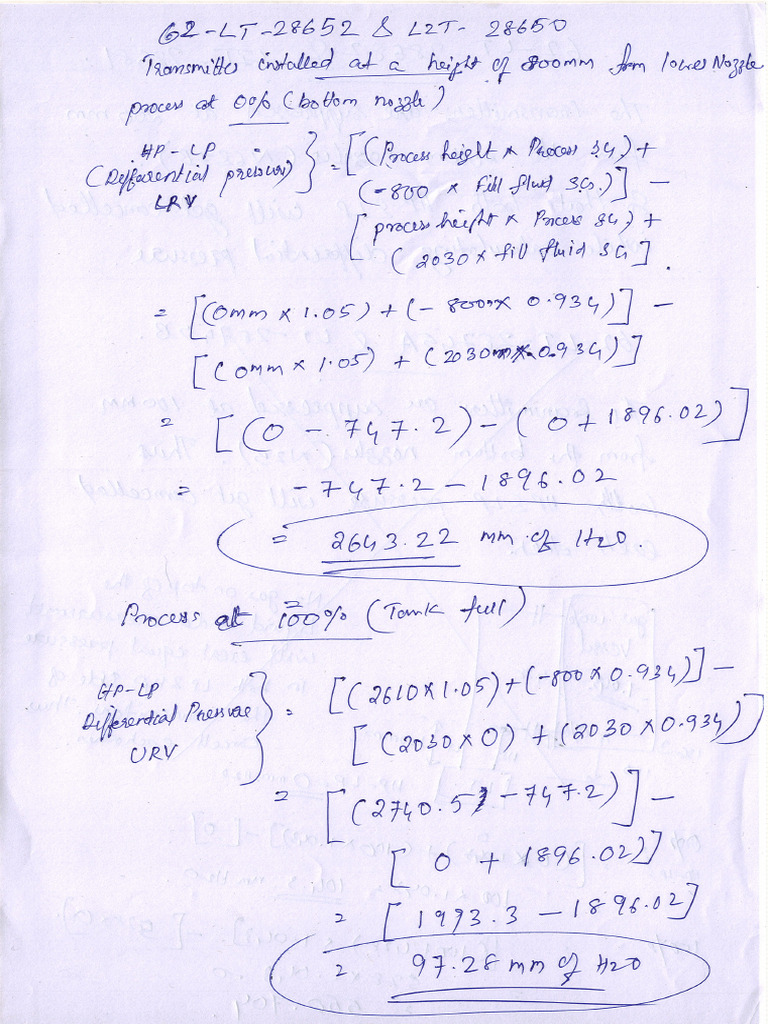 62-LT-28652 & LZT-28650
Transmitter installed at a height of 800mm from lower Nozzle
process at 0% (bottom nozzle)
HP-LP
(Differential pressure)
LRV
} = [(Process height × Process SG) +
(-800 × Fill fluid SG.)] -
[process height × Process SG) +
(2030 × fill fluid SG].
= [(0mm × 1.05) + (-800 × 0.934)] -
[(0mm × 1.05) + (2030mm × 0.934)]
= [(0 - 747.2) - (0 + 1896.02)]
= -747.2 - 1896.02
= 2643.22 mm of H2O.
Process at 100% (Tank full)
HP-LP
Differential Pressure
URV
} = [(2610 × 1.05) + (-800 × 0.934)] -
[(2030 × 0) + (2030 × 0.934)]
= [(2740.5 - 747.2)] -
[0 + 1896.02)]
= [1993.3 - 1896.02]
= 97.28 mm of H2O